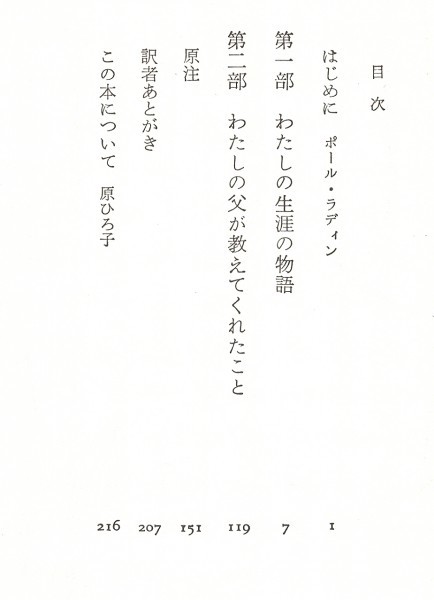 目次
はじめに　ポール・ラディン　1
第一部　わたしの生涯の物語　7
第二部　わたしの父が教えてくれたこと　119
原注　151
訳者あとがき　207
この本について　原ひろ子　216